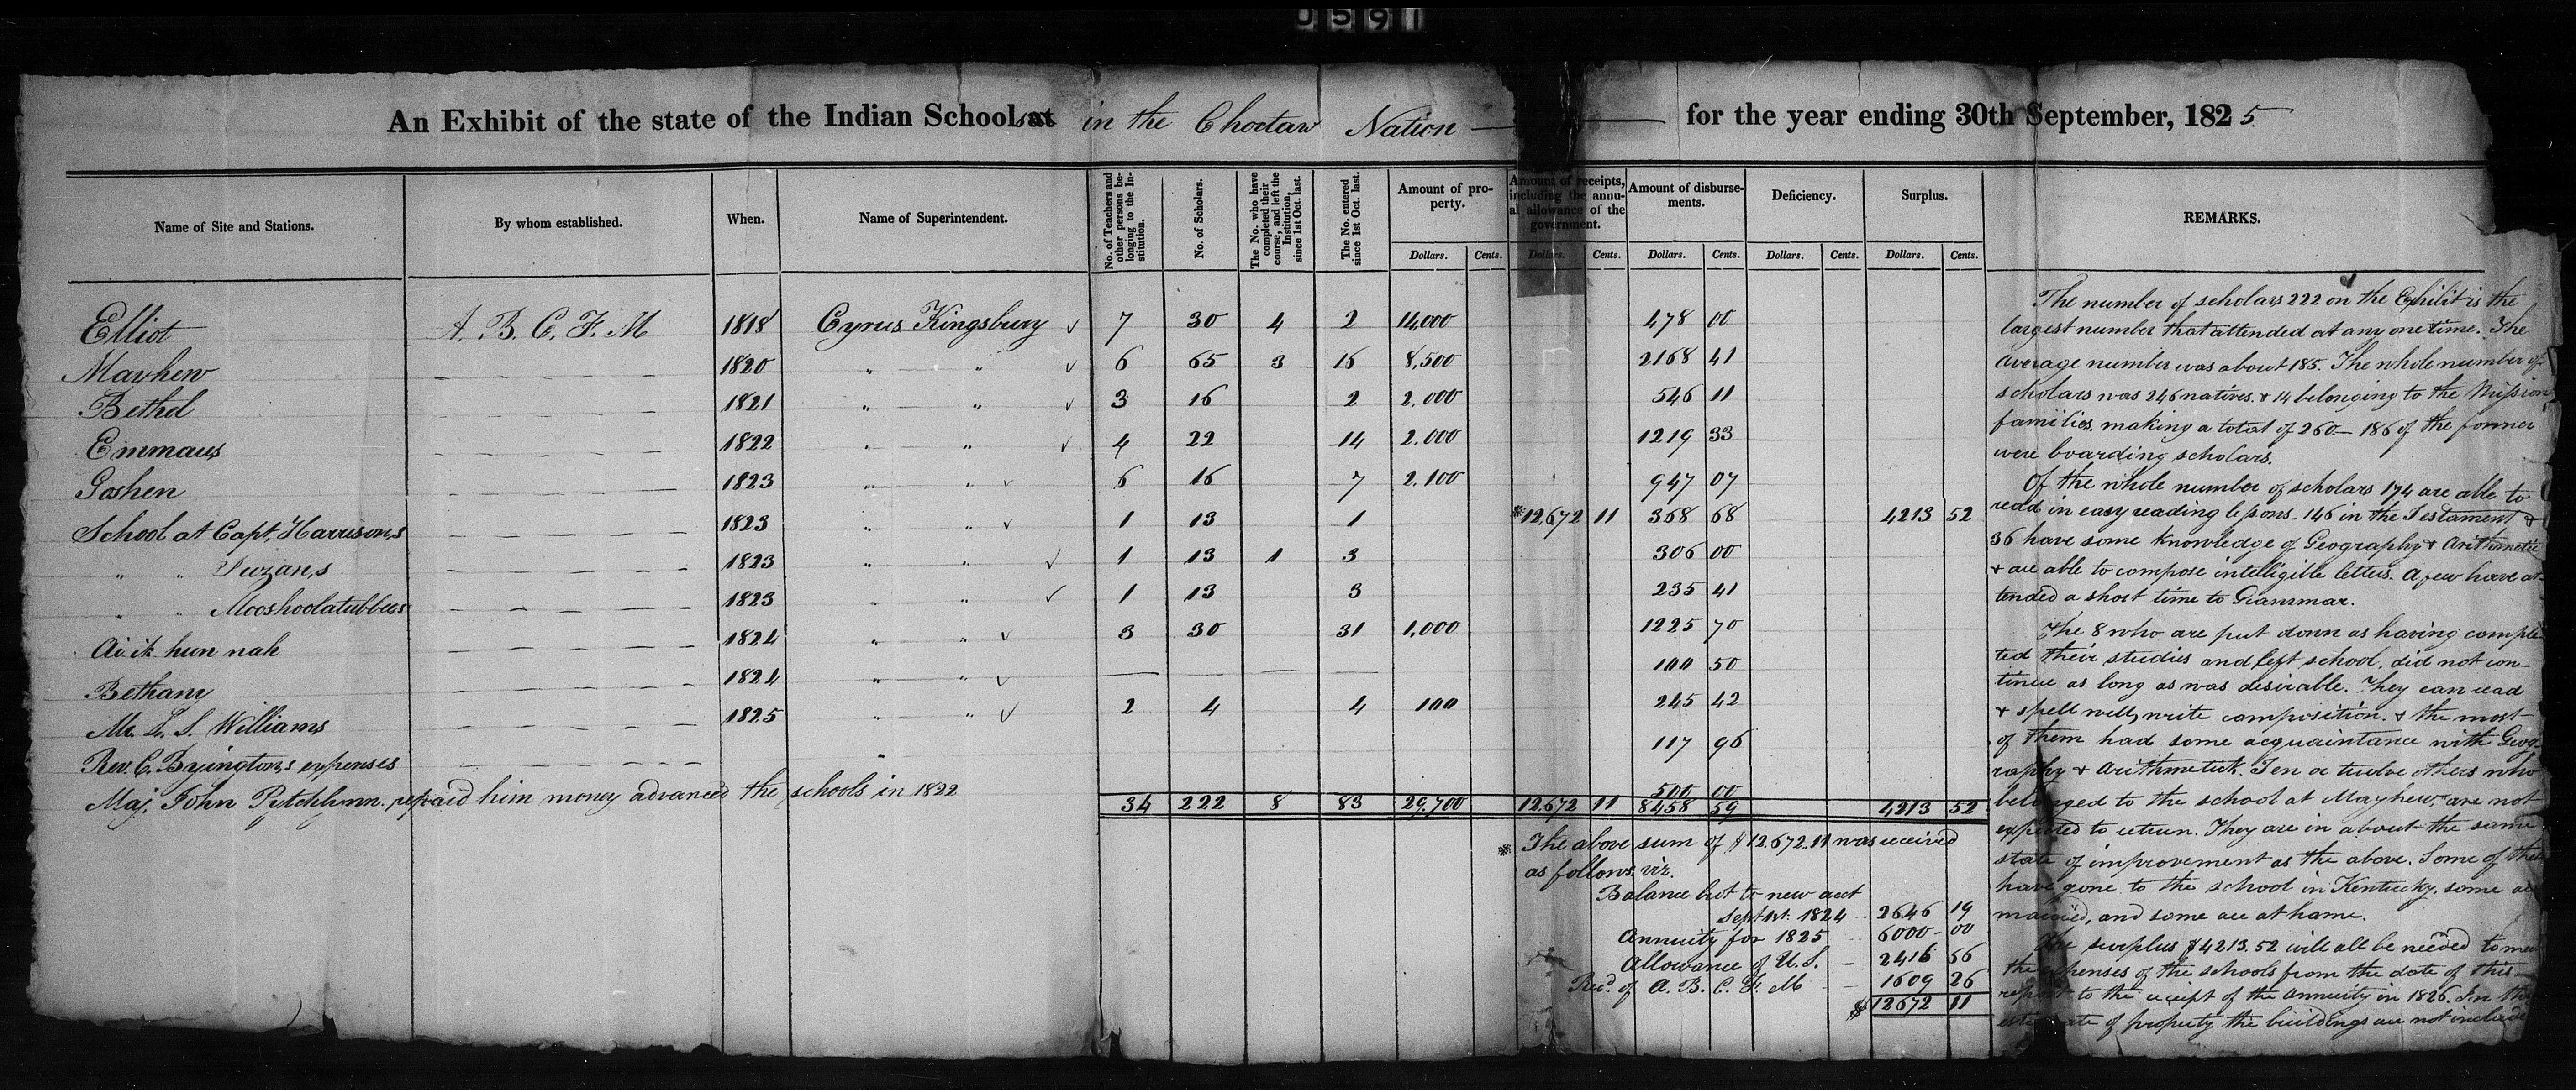 0591
An Exhibit of the state of the Indian Schools in the Choctaw Nation — for the year ending 30th September, 1825
Name of Site and Stations. By whom established. When. Name of Superintendent. No. of Teachers and other persons belonging to the Institution. No. of Scholars. The No. who have completed their course, and left the Institution, since 1st Oct. last. The No. entered since 1st Oct. last. Amount of property. Amount of receipts, including the annual allowance of the government. Amount of disbursements. Deficiency. Surplus. REMARKS.
Dollars. Cents. Dollars. Cents. Dollars. Cents. Dollars. Cents. Dollars. Cents.
Elliot A. B. C. F. M 1818 Cyrus Kingsbury √ 7 30 4 2 14,000 478 00
Mayhew — — — 1820 " " √ 6 65 3 16 8,500 2168 41
Bethel — — — 1821 " " √ 3 16 2 2,000 546 11
Emmaus — — — 1822 " " √ 4 22 14 2,000 1219 33
Goshen — — — 1823 " " √ 6 16 7 2,100 947 07
School at Capt. Harrison,s — — — 1823 " " √ 1 13 1 *12,672 11 368 68 4213 52
" " Juzan,s — — — 1823 " " √ 1 13 1 3 306 00
" " Mooshoolatubbees — — — 1823 " " √ 1 13 3 235 41
Ai ik hun nah — — — 1824 " " √ 3 30 31 1,000 1225 70
Bethany — — — 1824 " " √ — — — — 100 50
Mr. L. S. Williams — — — 1825 " " √ 2 4 4 100 245 42
Rev. C. Byington,s expenses — — — " 117 96
Maj. John Pytchlynn. repaid him money advanced the schools in 1822 500 00
34 222 8 83 29,700 12672 11 8458 59 4213 52
* The above sum of $12.672.11 was received
as follows. viz.
Balance brt to new acct
Sept 1st. 1824 2646 19
Annuity for 1825 6000 - 00
Allowance of U. S. — 2416 66
Recd. of A. B. C. F. M — 1609 26
$ 12672 11
The number of scholars 222 on the Exhibit is the
largest number that attended at any one time. The
average number was about 185. The whole number of
scholars was 246 natives. & 14 belonging to the Mission
families. making a total of 260 — 186 of the former
were boarding scholars.
Of the whole number of scholars 174 are able to
read in easy reading lessons - 146 in the Testament &
36 have some knowledge of Geography & Arithmetic
& are able to compose intelligible letters. A few have at-
tended a short time to Grammar.
The 8 who are put down as having comple-
ted their studies and left school, did not con-
tinue as long as was desirable. They can read
& spell well, write composition. & the most
of them had some acquaintance with Geog-
raphy & Arithmetick. Ten or twelve others who
belonged to the school at Mayhew, are not
expected to return. They are in about the same
state of improvement as the above. Some of them
have gone to the school in Kentucky, some are
married, and some are at home.
The surplus $4213.52 will all be needed to meet
the expenses of the schools from the date of this
report to the receipt of the annuity in 1826. In the
estimate of property the buildings are not included